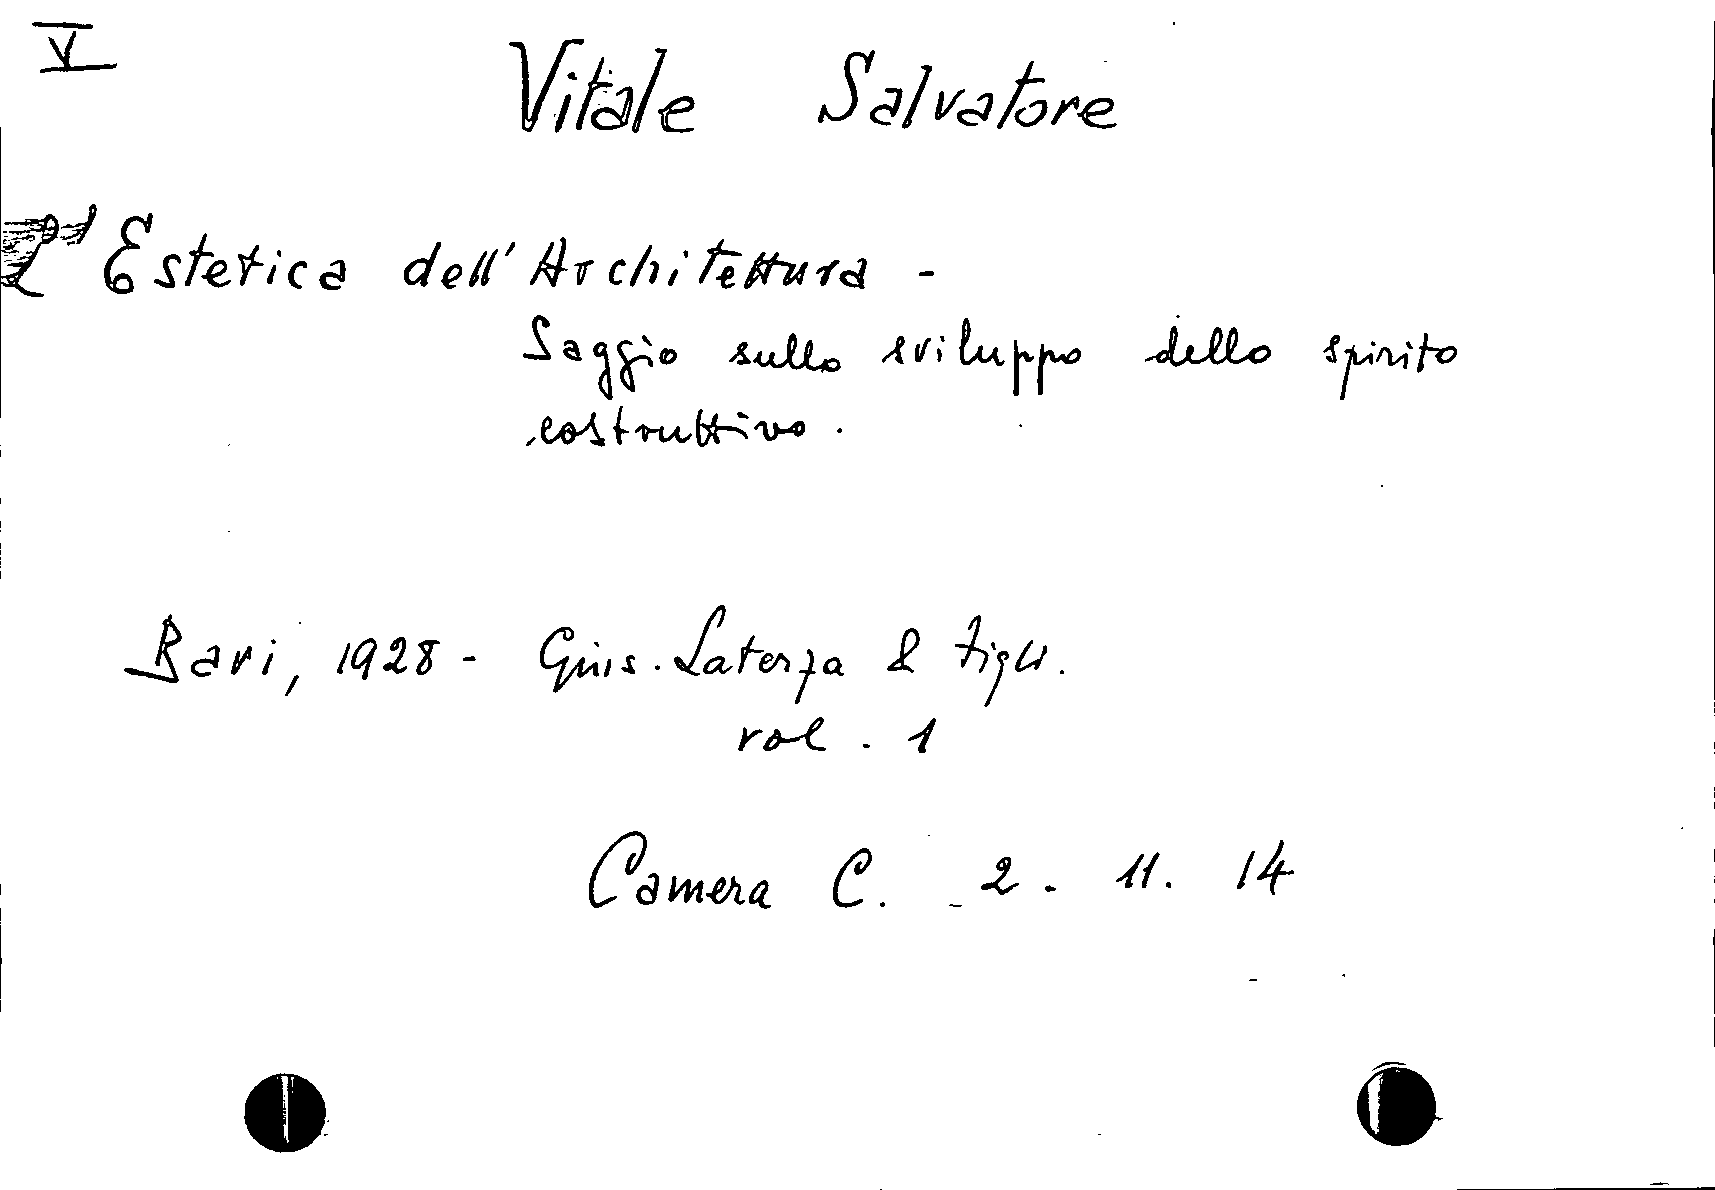 V
Vitale Salvatore
L'Estetica dell'Architettura -
Saggio sullo sviluppo dello spirito
costruttivo.
Bari, 1928 - Gius. Laterza & figli.
vol. 1
Camera C. - 2 - 11. 14